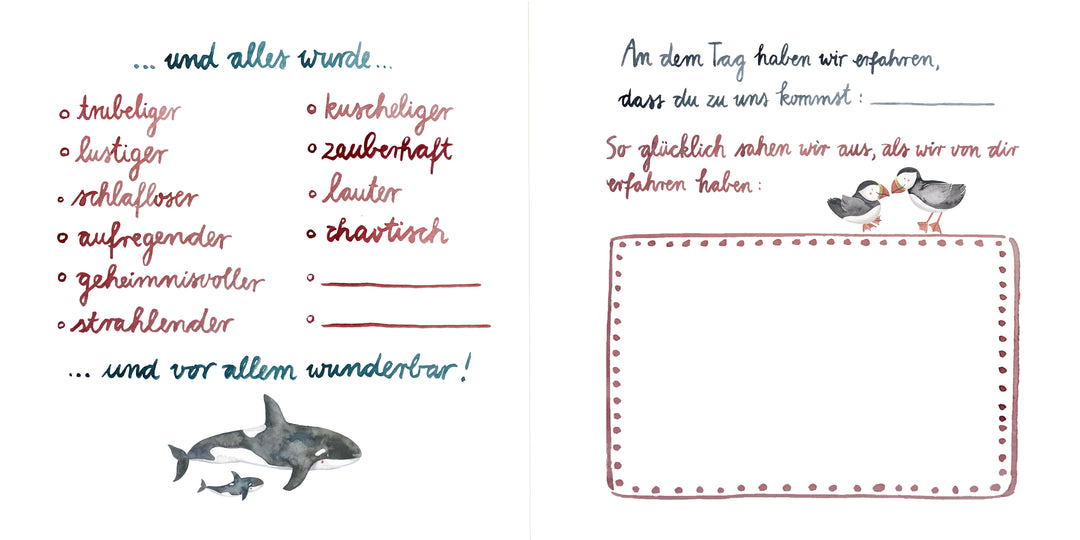 ... und alles wurde...
o trubeliger
o lustiger
o schlafloser
o aufregender
o geheimnisvoller
o strahlender
o kuscheliger
o zauberhaft
o lauter
o chaotisch
... und vor allem wunderbar!
An dem Tag haben wir erfahren,
dass du zu uns kommst:
So glücklich sahen wir aus, als wir von dir
erfahren haben: